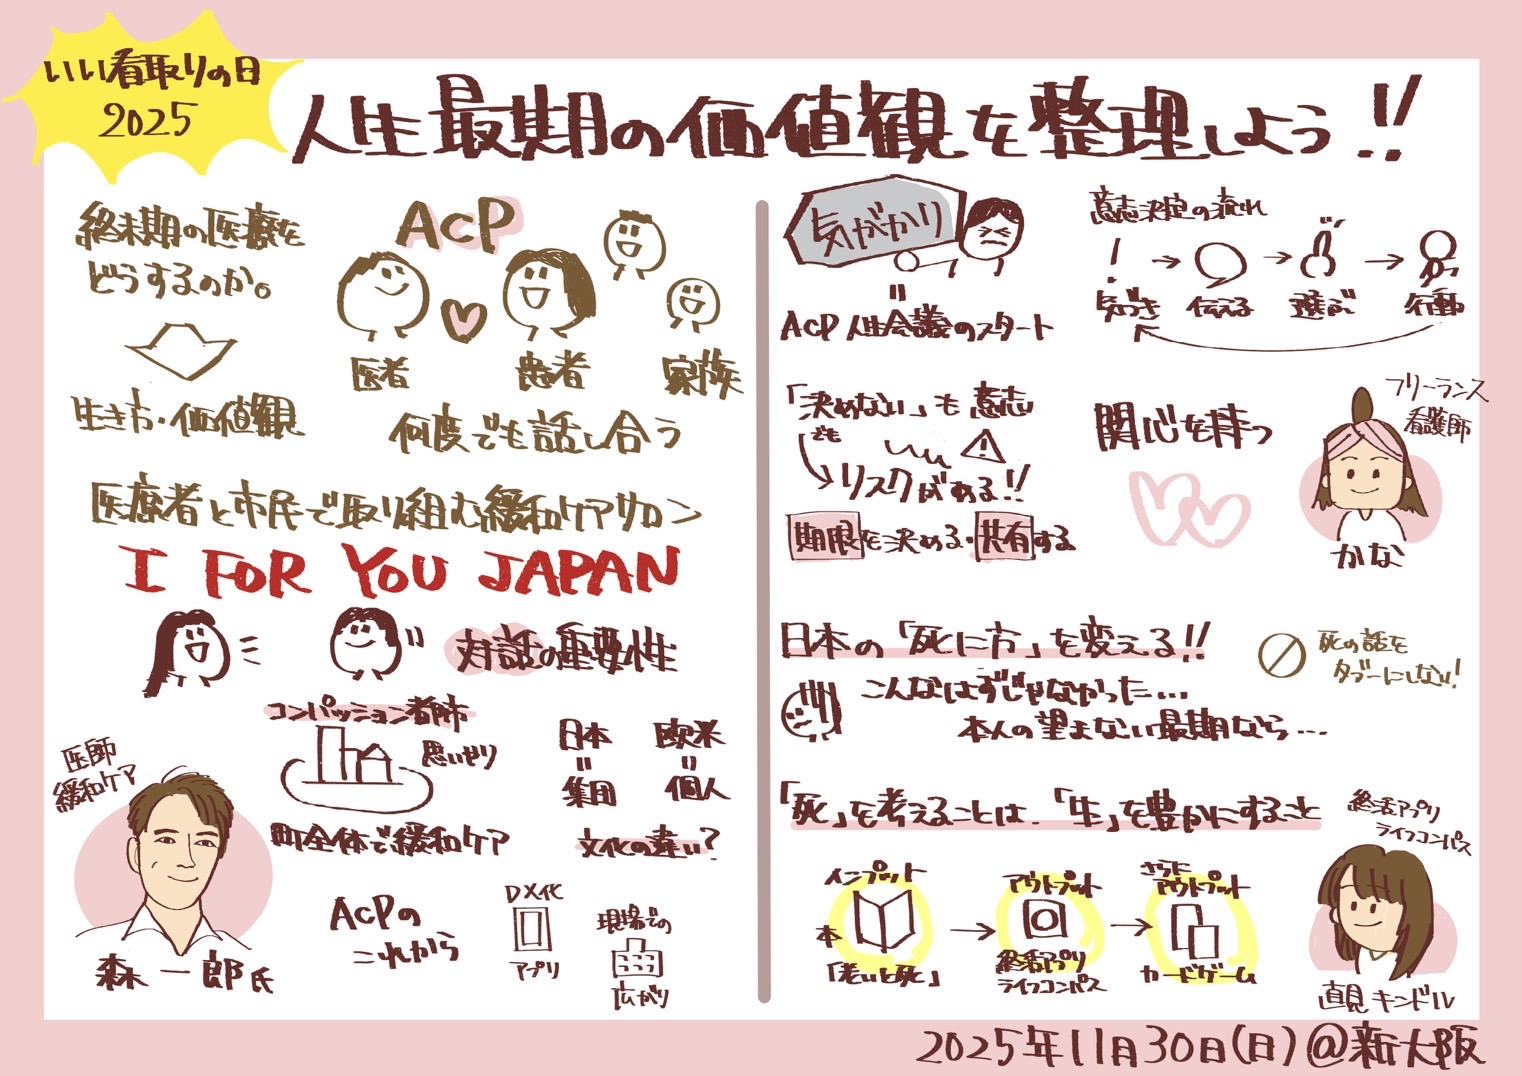 いい看取りの日
2025
人生最期の価値観を整理しよう!!
終末期の医療を
どうするのか。
生き方・価値観
ACP
医者
患者
家族
何度でも話し合う
医療者と市民で取り組む緩和ケアサロン
I FOR YOU JAPAN
対話の重要性
コンパッション都市
思いやり
町全体で緩和ケア
日本
=
集団
欧米
=
個人
文化の違い?
医師
緩和ケア
森 一郎氏
ACPの
これから
DX化
アプリ
現場での
広がり
気がかり
=
ACP人生会議のスタート
意志決定の流れ
! → → →
気づき 伝える 選ぶ 行動
「決めない」も意志
でも
リスクがある!!
期限を決める・共有する
関心を持つ
フリーランス
看護師
かな
日本の「死に方」を変える!!
死の話を
タブーにしない!
こんなはずじゃなかった…
本人の望まない最期なら…
「死」を考えることは、「生」を豊かにすること
インプット
本
「老いと死」
→
アウトプット
終活アプリ
ライフコンパス
→
さらに
アウトプット
カードゲーム
終活アプリ
ライフコンパス
直見キンドル
2025年11月30日(日)@新大阪